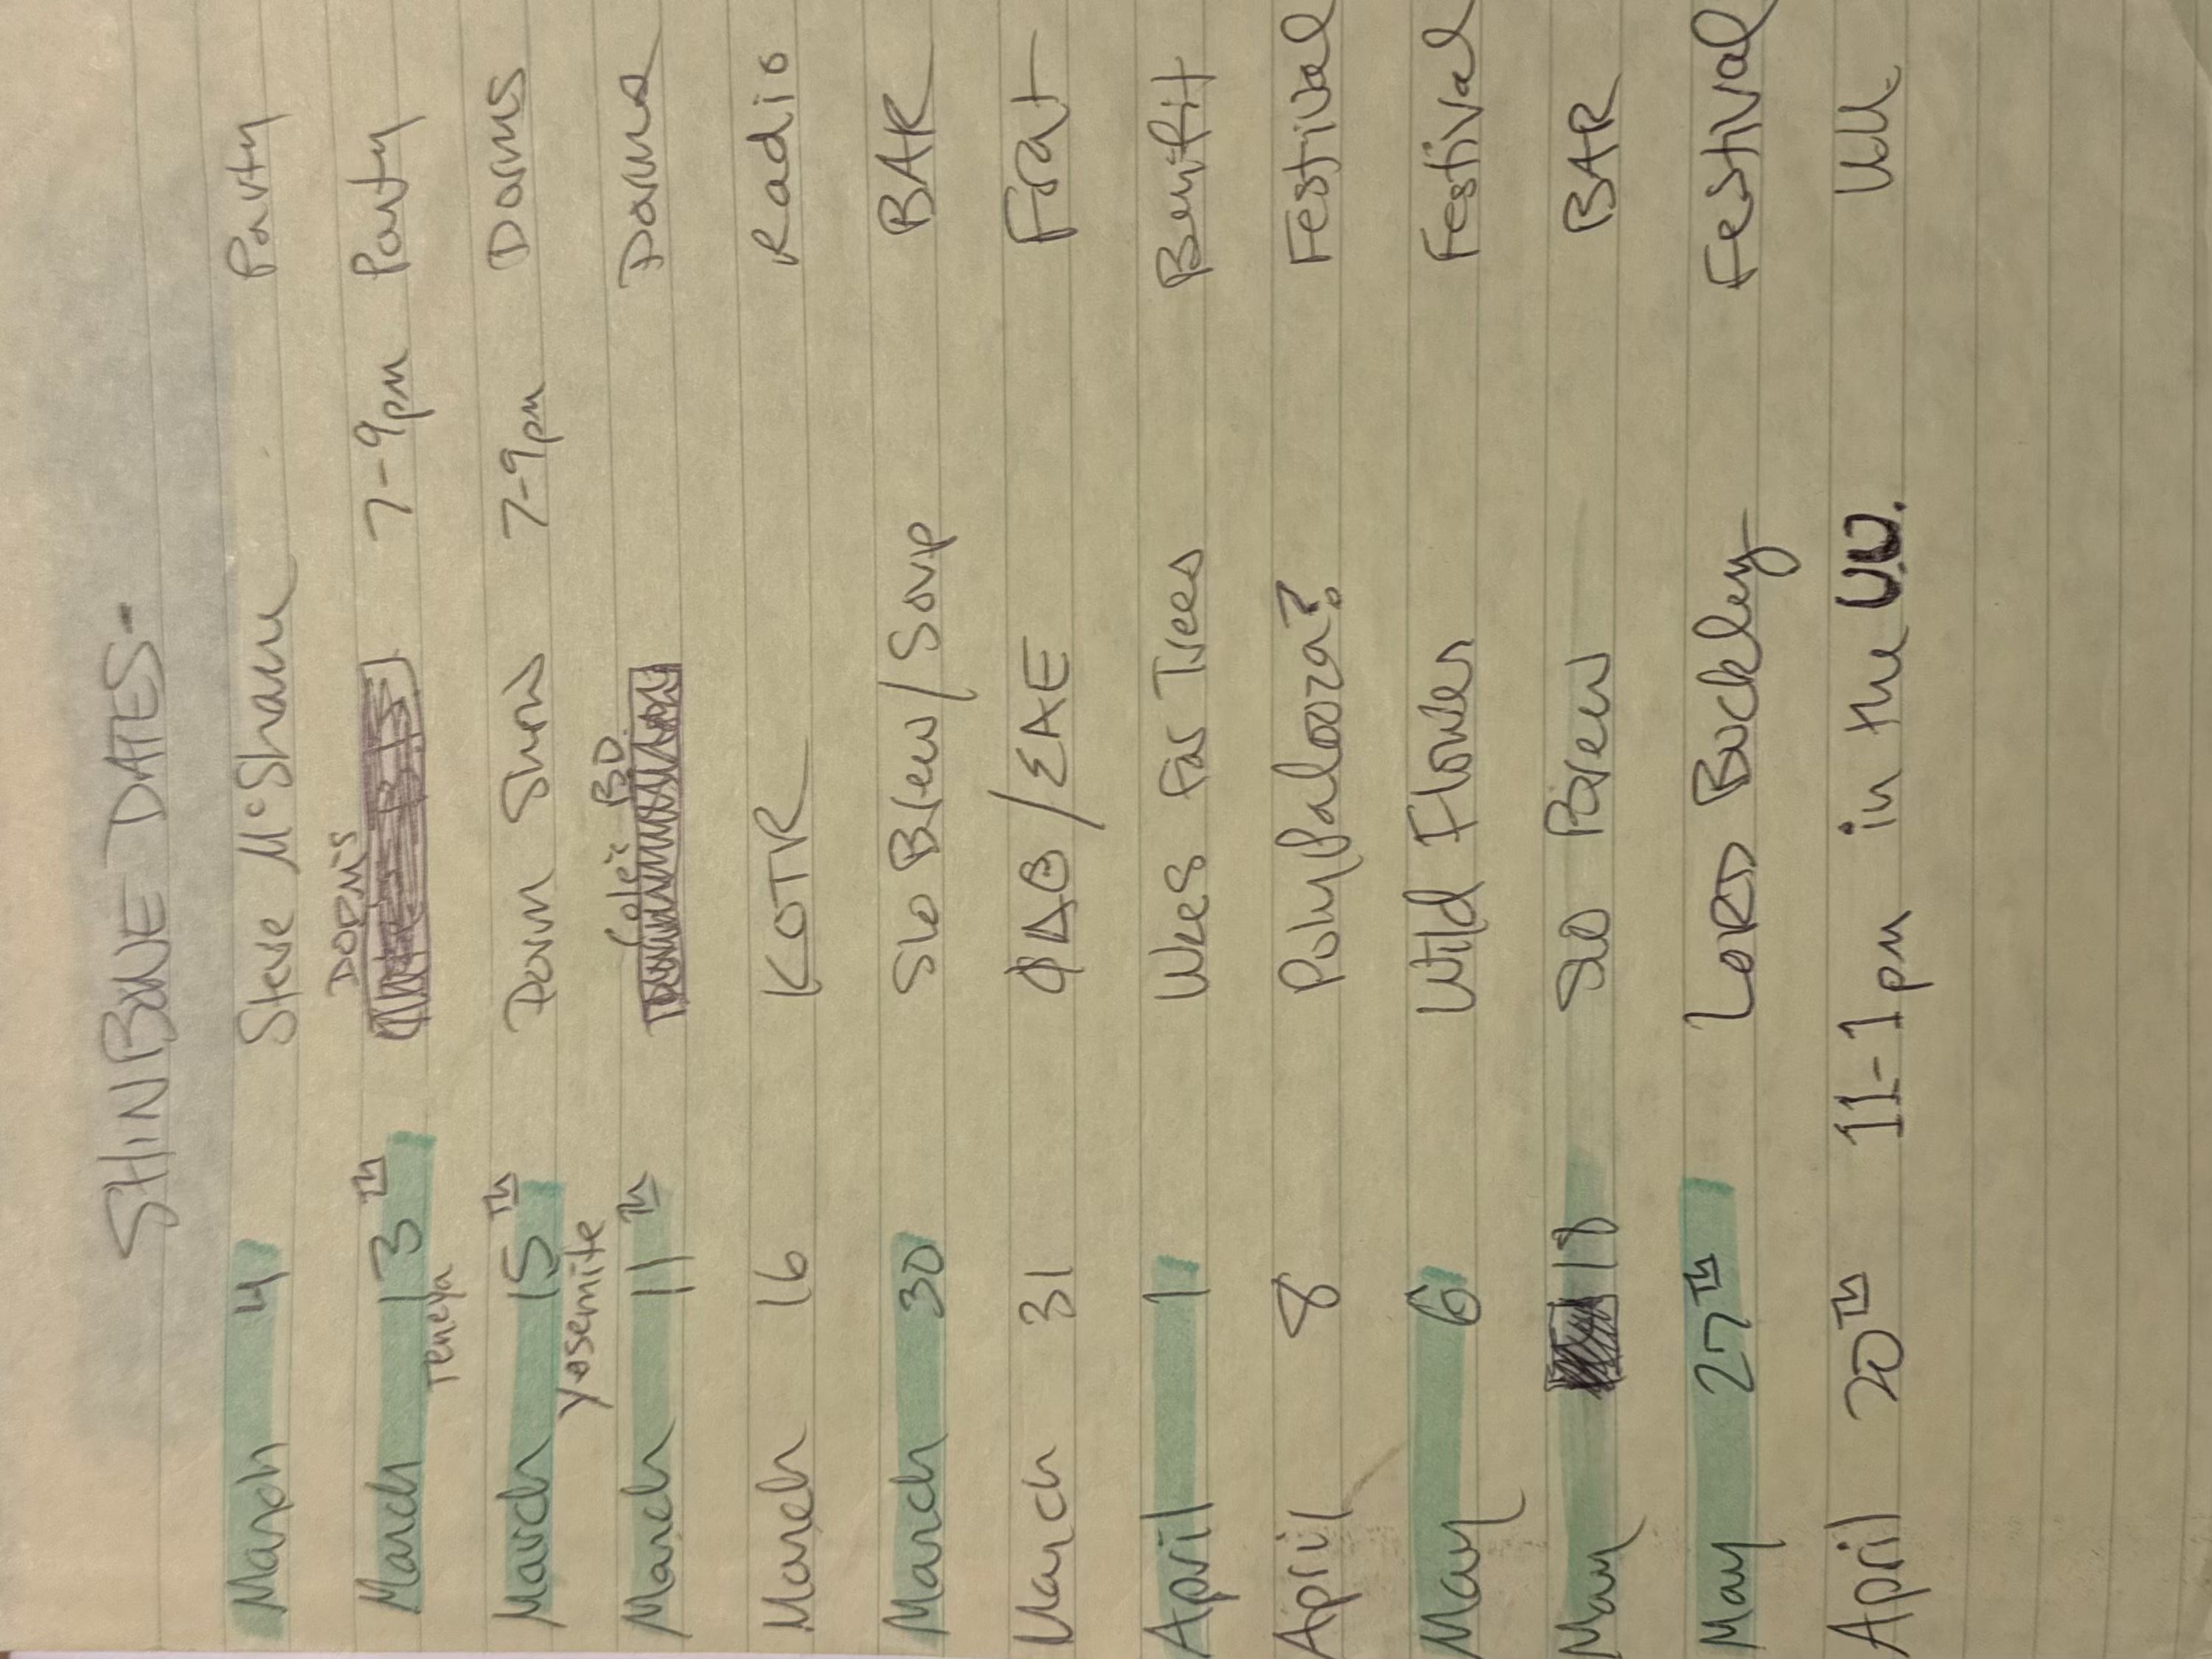 SHINBONE DATES-
March 4 Steve McShane Party
DORMS
March 13TH 7-9pm Party
Teneya
March 15TH Dorm Show 7-9pm Dorms
Yosemite Cole's BD.
March 11TH Dorms
March 16 KOTR Radio
March 30 SLO Brew/Soup BAR
March 31 ΦΔΘ/ΣAE Frat
April 1 Wkes for Trees Benifit
April 8 PolyPalooza? Festival
May 6 Wild Flower Festival
May 18 SLO Brew BAR
May 27TH LORD Buckley Festival
April 20TH 11-1pm in the U.U. UU